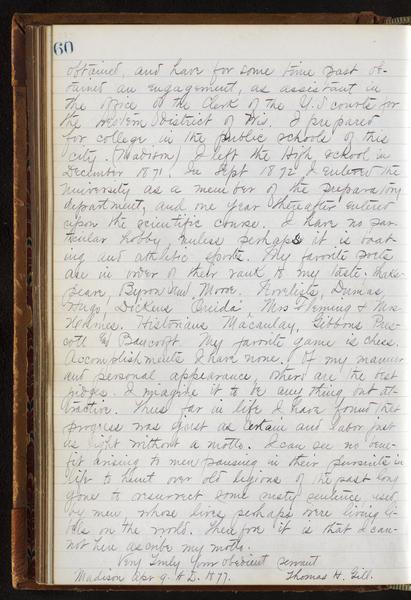 60
obtained, and have for some time past ob-
tained an engagement, as assistant in
the office of the Clerk of the U.S courts for
the Western District of Wis. I prepared
for college in the public schools of this
city (Madison) I left the High school in
December 1871. In Sept 1872 I entered the
University as a member of the preparatory
department, and one year thereafter entered
upon the scientific course. I have no par-
ticular hobby, unless perhaps it is boat-
ing and athletic sports. My favorite poets
are in order of their rank to my taste. Shake-
speare, Byron and Moore. Novelists, Dumas,
Hugo, Dickens Ouida, Mrs Fleming & Mrs
Holmes. Historians Macaulay, Gibbons Pres-
cott & Bancroft My favorite game is chess.
Accomplishments I have none. Of my manner
and personal appearance, others are the best
judges. I imagine it to be any thing but at-
tractive. Thus far in life I have found that
progress was just as certain and labor just
as light without a motto. I can see no bene-
fit arising to men pausing in their pursuits in
life to hunt over old legions of the past long
gone to resurrect some musty sentence used
by men, whose lives perhaps were living
on the world. Therefore it is that I can-
not here ascribe my motto.
Very Truly Your obedient servant
Madison Apr 9. A.D. 1877. Thomas H. Gill.